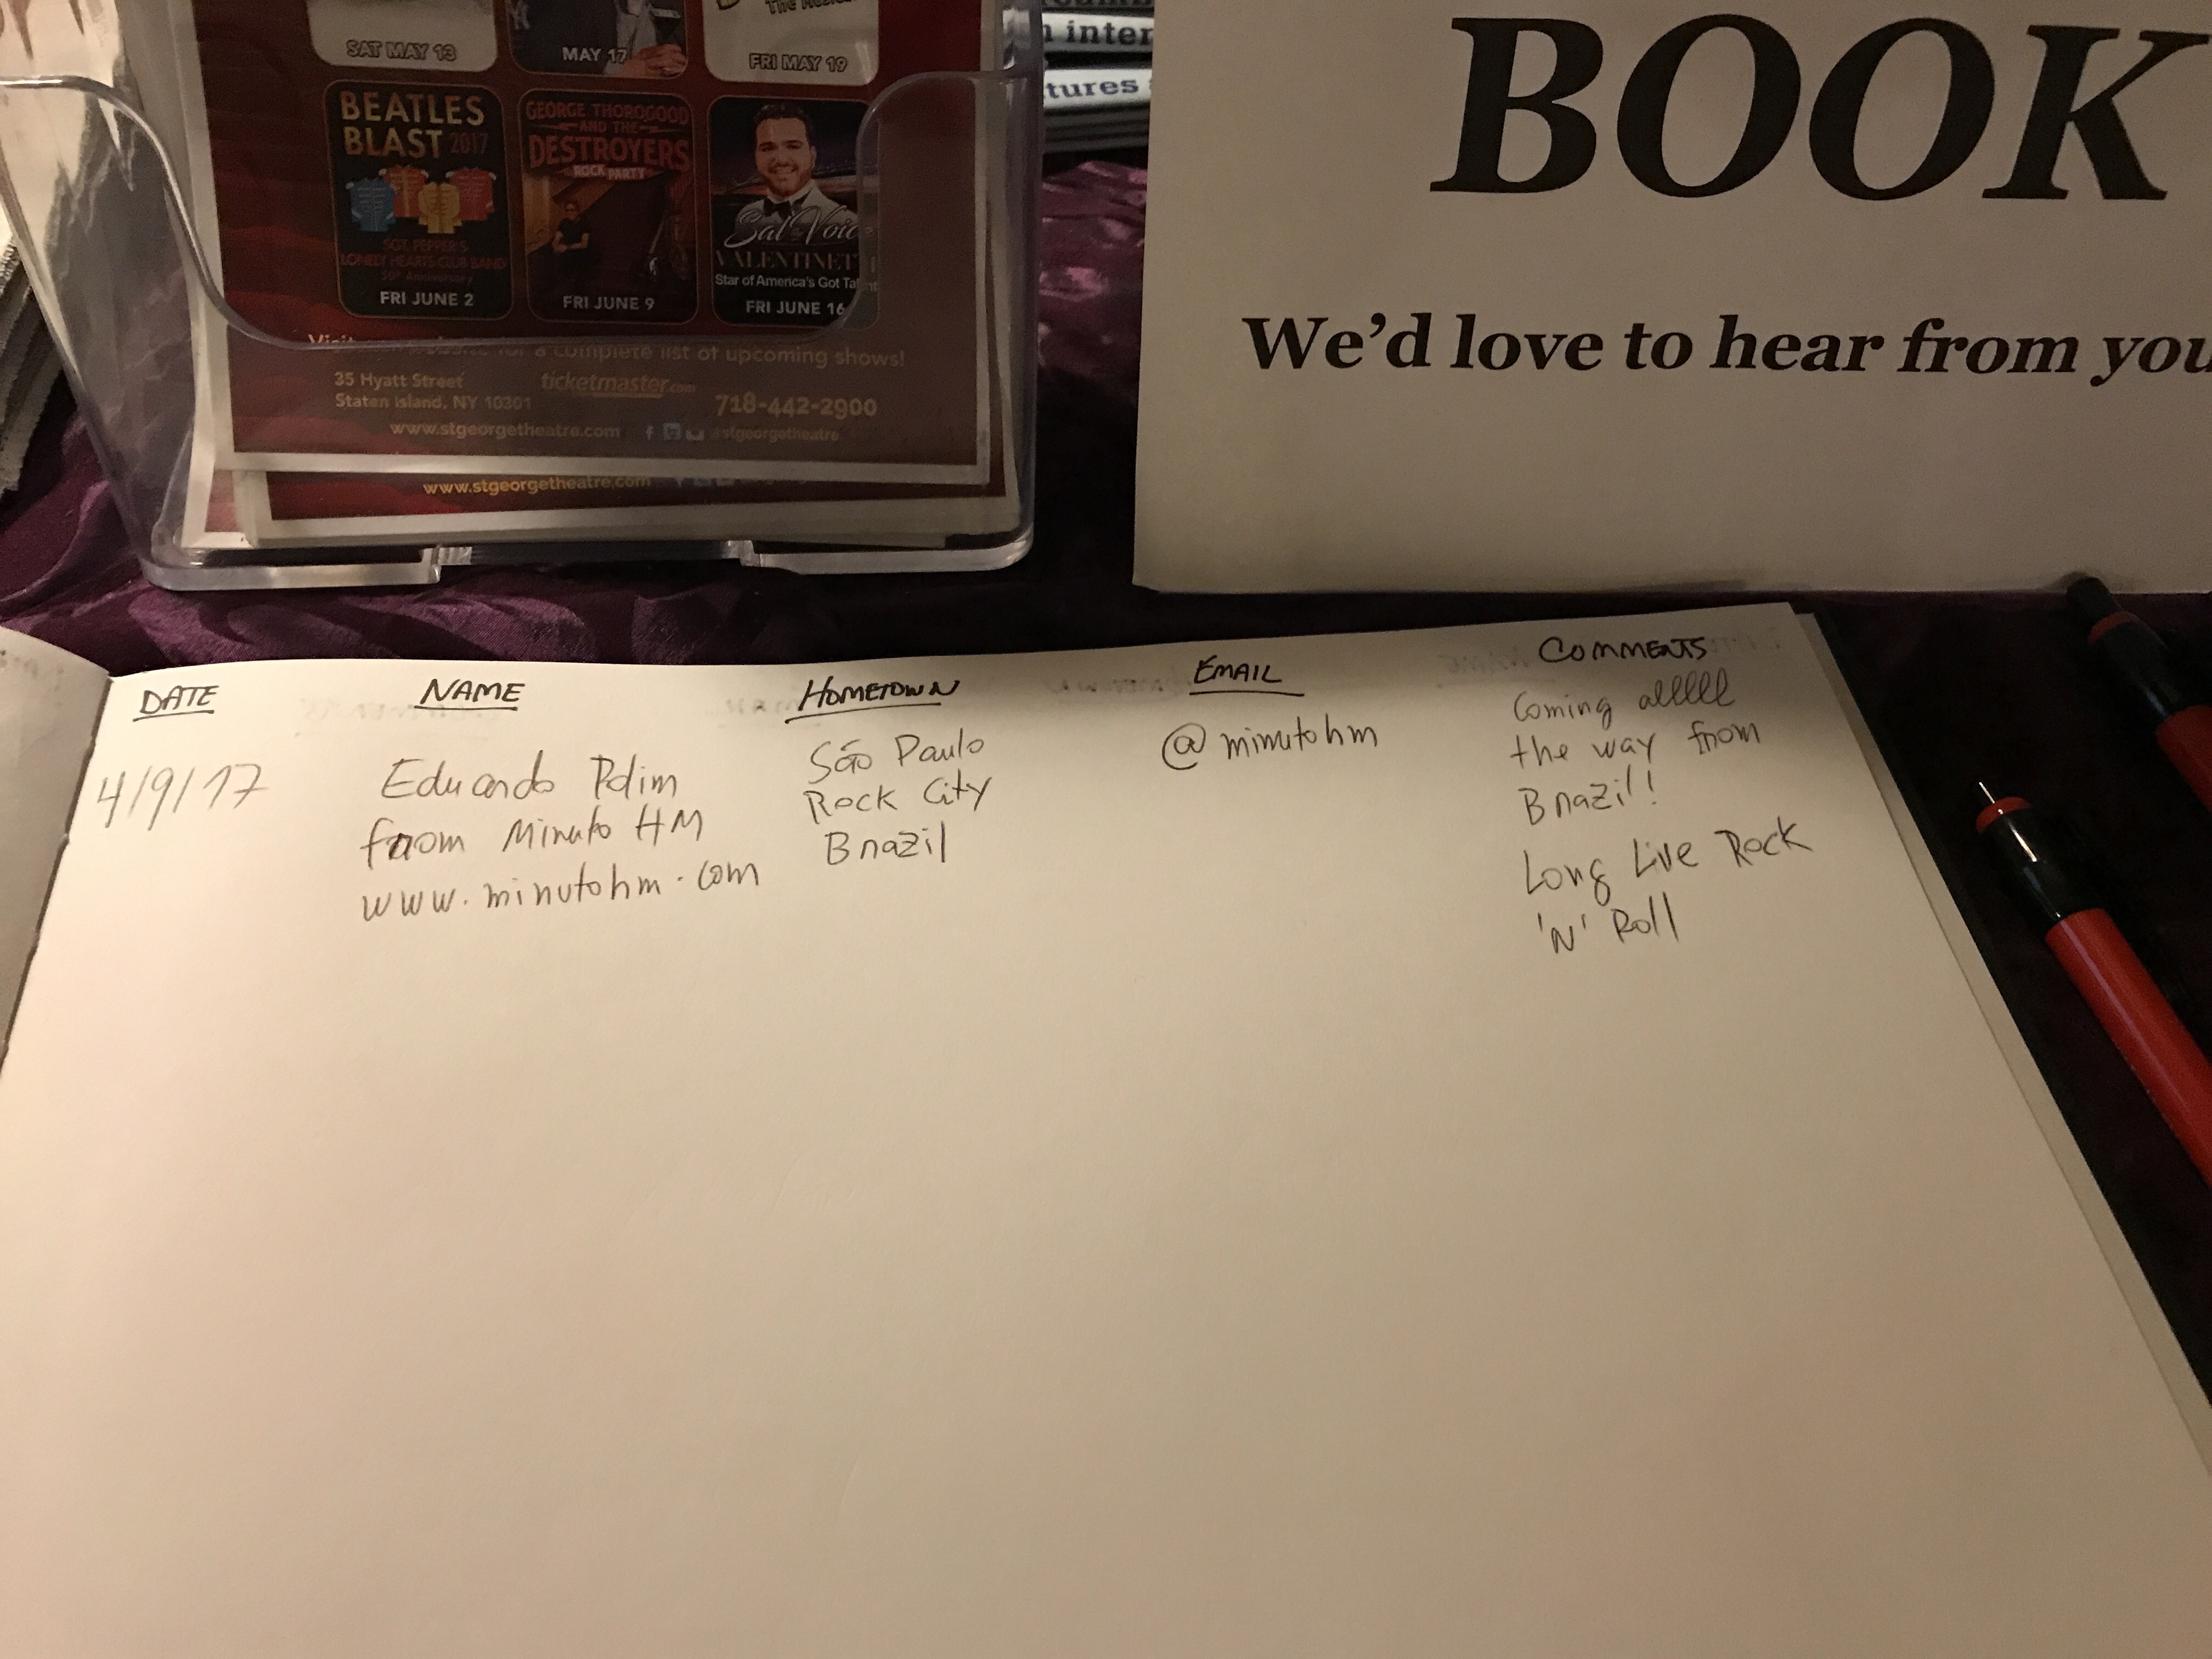 The Musical
SAT MAY 13
MAY 17
FRI MAY 19
BEATLES
BLAST 2017
SGT. PEPPER'S
LONELY HEARTS CLUB BAND
50th Anniversary
FRI JUNE 2
GEORGE THOROGOOD
AND THE
DESTROYERS
ROCK PARTY
FRI JUNE 9
Sal "The Voice"
VALENTINETTI
Star of America's Got Talent
FRI JUNE 16
for a complete list of upcoming shows!
35 Hyatt Street
Staten Island, NY 10301
ticketmaster.com
718-442-2900
www.stgeorgetheatre.com
@stgeorgetheatre
www.stgeorgetheatre.com
inter
tures
BOOK
We'd love to hear from you
DATE NAME HOMETOWN EMAIL COMMENTS
4/9/17
Eduardo
from Minuto HM
www.minutohm.com
São Paulo
Rock City
Brazil
@minutohm
Coming alllll
the way from
Brazil!
Long Live Rock
'N' Roll